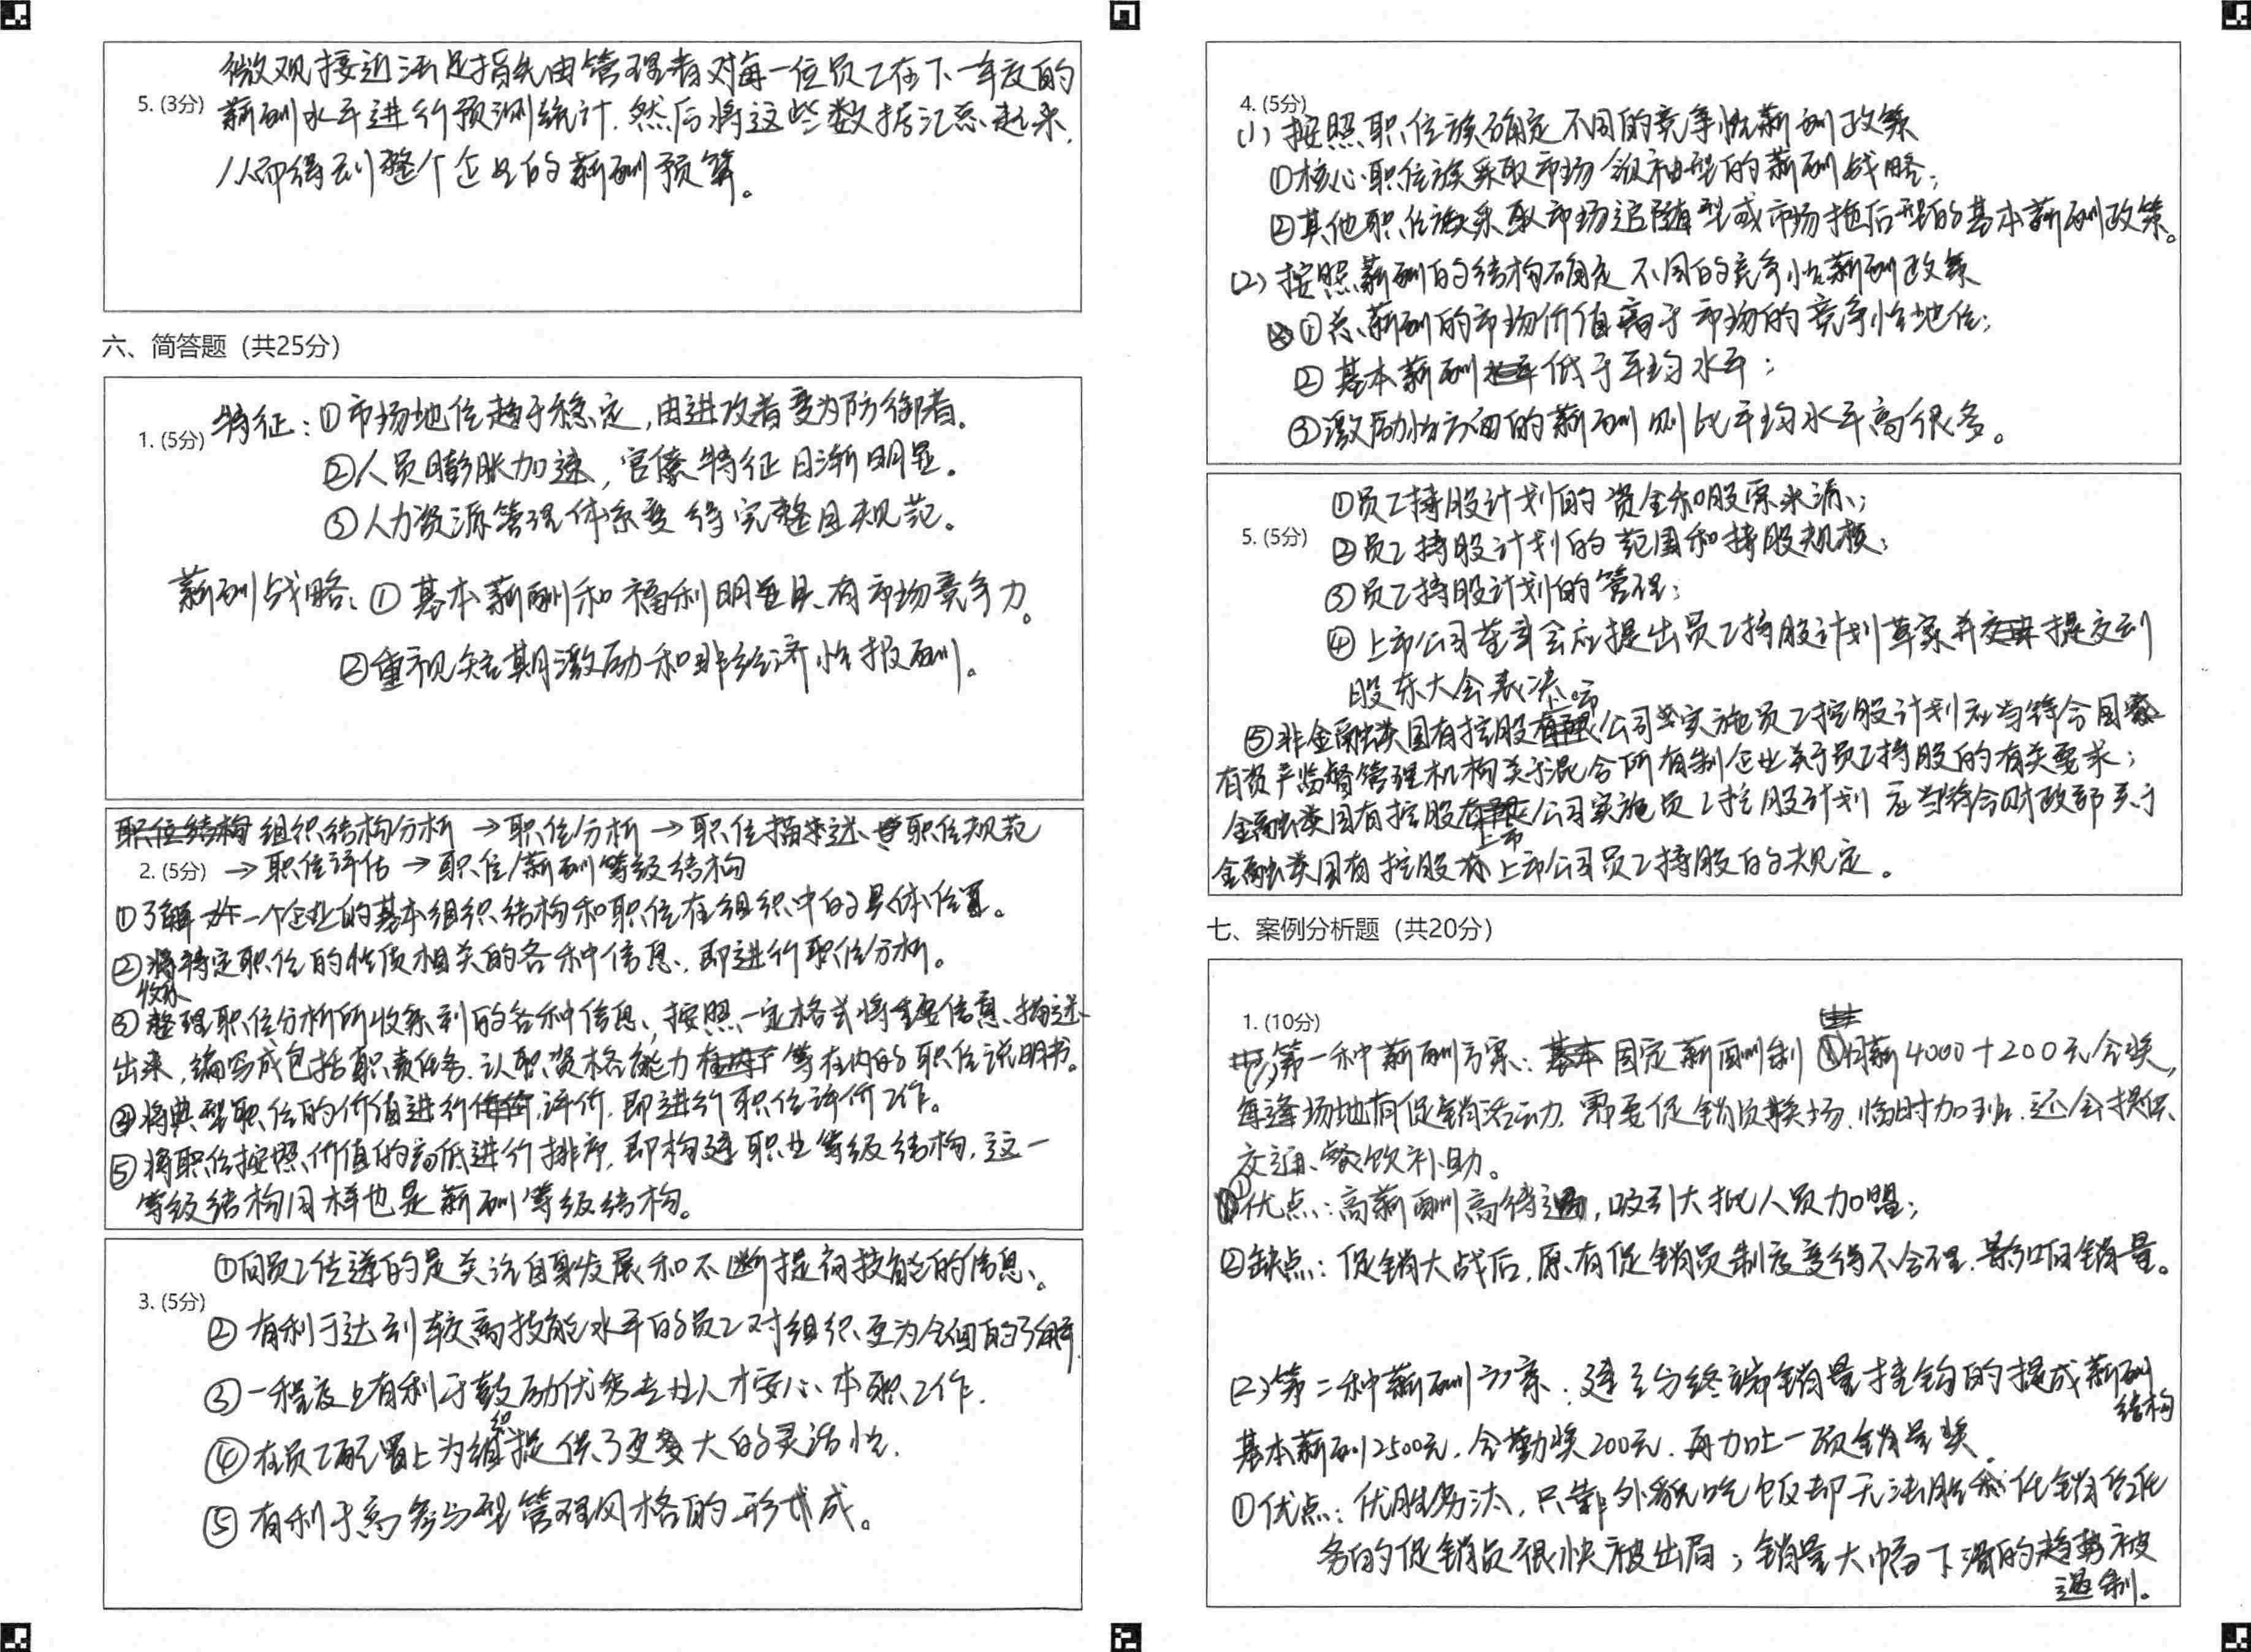 微观接近法是指先由管理者对每一位员工在下一年度的
5. (3分) 薪酬水平进行预测统计.然后将这些数据汇总起来,
从而得到整个企业的薪酬预算。
六、简答题（共25分）
特征：①市场地位趋于稳定,由进攻者变为防御者.
1. (5分)
②人员膨胀加速,官僚特征日渐明显.
③人力资源管理体系变得完整且规范。
薪酬战略：①基本薪酬和福利明显具有市场竞争力。
②重视短期激励和非经济性报酬。
组织结构分析→职位分析→职位描述、职位规范
2. (5分) →职位评估→职位/薪酬等级结构
①了解一个企业的基本组织结构和职位在组织中的具体位置。
②收集特定职位的性质相关的各种信息,即进行职位分析。
③整理职位分析所收集到的各种信息,按照一定格式将重要信息描述
出来,编写成包括职责任务、认职资格能力等在内的职位说明书。
④将典型职位的价值进行评价,即进行职位评价工作。
⑤将职位按照价值的高低进行排序,即构建职业等级结构,这一
等级结构同样也是薪酬等级结构。
①向员工传递的是关注自身发展和不断提高技能的信息、
3. (5分)
②有利于达到较高技能水平的员工对组织更为全面的了解.
③一程度上有利于鼓励优秀专业人才安心本职工作.
④在员工配置上为组织提供了更大的灵活性.
⑤有利于高参与型管理风格的形成。
4. (5分)
(1)按照职位族确定不同的竞争性薪酬政策
①核心职位族采取市场领袖型的薪酬战略;
②其他职位族采取市场追随型或市场拖后型的基本薪酬政策。
(2)按照薪酬的结构确定不同的竞争性薪酬政策
①总薪酬的市场价值高于市场的竞争性地位;
②基本薪酬低于平均水平;
③激励性方面的薪酬则比平均水平高很多。
①员工持股计划的资金和股票来源;
5. (5分) ②员工持股计划的范围和持股规模;
③员工持股计划的管理;
④上市公司董事会应提出员工持股计划草案并提交到
股东大会表决;
⑤非金融类国有控股上市公司实施员工控股计划应当符合国
有资产监督管理机构关于混合所有制企业关于员工持股的有关要求;
金融类国有控股上市公司实施员工控股计划应当符合财政部关于
金融类国有控股上市公司员工持股的规定。
七、案例分析题（共20分）
1. (10分)
第一种薪酬方案：固定薪酬制 ①月薪4000+200元全奖,
每逢场地有促销活动,需要促销员换场、临时加班,还会提供
交通、餐饮补助。
①优点：高薪酬高待遇,吸引大批人员加盟;
②缺点：促销大战后,原有促销员制度变得不合理,影响销量。
(2)第二种薪酬方案:建立与终端销量挂钩的提成薪酬
结构
基本薪酬2500元,全勤奖200元.再加上一项销量奖.
①优点：优胜劣汰,只靠外貌吃饭却无法胜任销售任
务的促销员很快被出局;销量大幅下滑的趋势被
遏制。